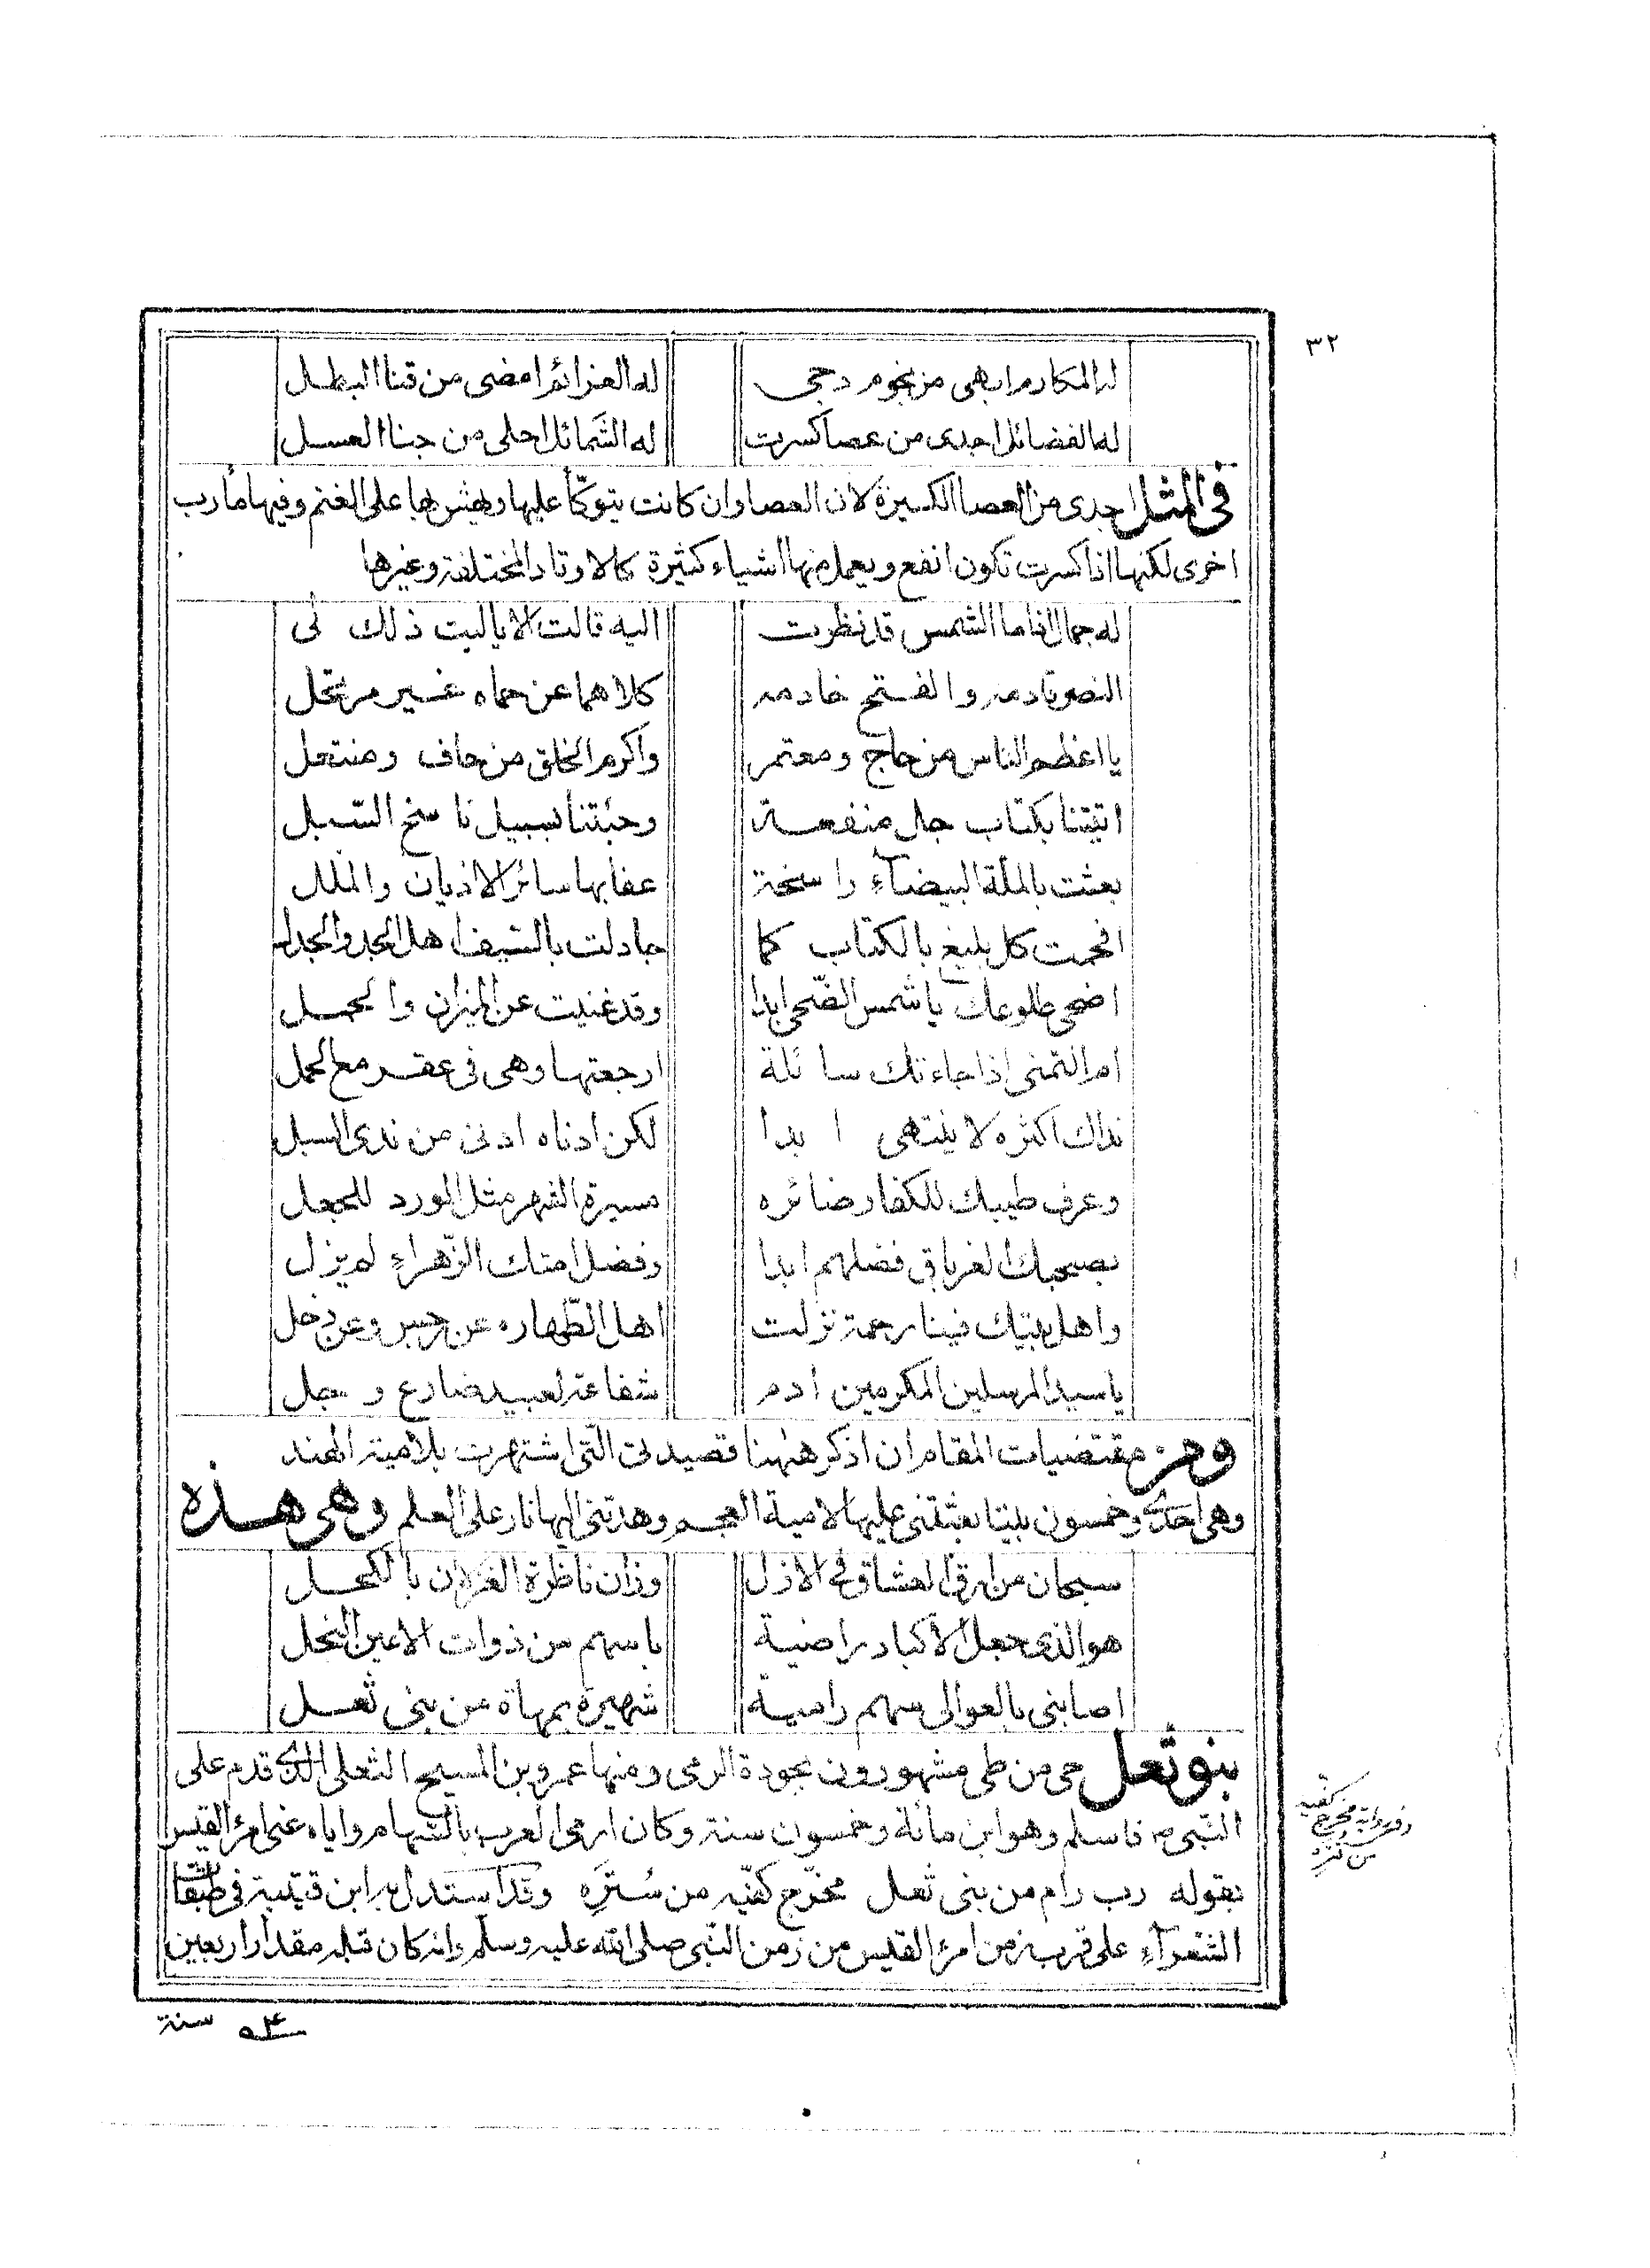 ٣٢
له المكارم ابهى من نجوم دجى له العزائم امضى من قنا البطل
له الفضائل اجدى من عصا كسرت له الشمائل احلى من جنا العسل
فى المثل اجدى من العصا الكسيرة لان العصا وان كانت يتوكّأ عليها ويهشّ بها على الغنم وفيها مأرب
اخرى لكنها اذا كسرت تكون انفع ويعمل منها اشياء كثيرة كالاوتاد المختلفة وغيرها
له جمال اذا ما الشمس قد نظرت اليه قالت الا ياليت ذلك لى
النصر نادمه والفتح خادمه كلاهما عن حماه غير مرتحل
يا اعظم الناس من حاج ومعتمر واكرم الخلق من حاف ومنتعل
اتيتنا بكتاب جل منفعة وجئتنا بسبيل ناسخ السبل
بعثت بالملّة البيضآء راسخة عفا بها سائر الاديان والملل
افحمت كل بليغ بالكتاب كما جادلت بالسّيف اهل الجد والجدل
اضحى طلوعك ياشمس الضّحى ابدا وقد غنيت عن الميزان والحمل
ام التمنى اذا جاءتك سائلة ارجعتها وهى فى عقر مع الحمل
نداك اكثره لا ينتهى ابدا لكن ادناه ادنى من ندى السبل
وعرف طيبك للكفار ضائره مسيرة الشهر مثل الورد للجعل
بصحبك الغر باق فضلهم ابدا وفضل امتك الزّهراء لم يزل
واهل بيتك فينا رحمة نزلت اهل الطّهارة عن رجس وعن دخل
يا سيد المرسلين المكرمين ادم شفاعة لعبيد ضارع وجل
ومن مقتضيات المقام ان اذكر ههنا قصيدتى الّتى اشتهرت بلامية الهند
وهى احدى وخمسون بيتا بعثتنى عليها لامية العجم وهدتنى اليها نار على العلم وهى هذه
سبحان من ارق العشاق فى الازل وزان ناظرة الغزلان بالكحل
هو الذى جعل الاكباد راضية باسهم من ذوات الاعين النجل
اصابنى بالعوالى سهم رامية شهيرة بمهاة من بنى ثعل
بنو ثعل حى من طى مشهورون بجودة الرمى ومنها عمرو بن المسيح الثعلى الذى قدم على
النّبى ص فاسلم وهو ابن مائة وخمسون سنة وكان ارمى العرب بالسّهام واياه عنى امرؤ القيس
بقوله رب رام من بنى ثعل مخرج كفّيه من سُتَرِه وقد استدل به ابن قتيبة فى طبقات
الشعرآء على قرب زمن امرؤ القيس من زمن النّبى صلى الله عليه وسلّم وانه كان قبله مقدار اربعين
وفى رواية مخرج كفيه
من قتره
سنة